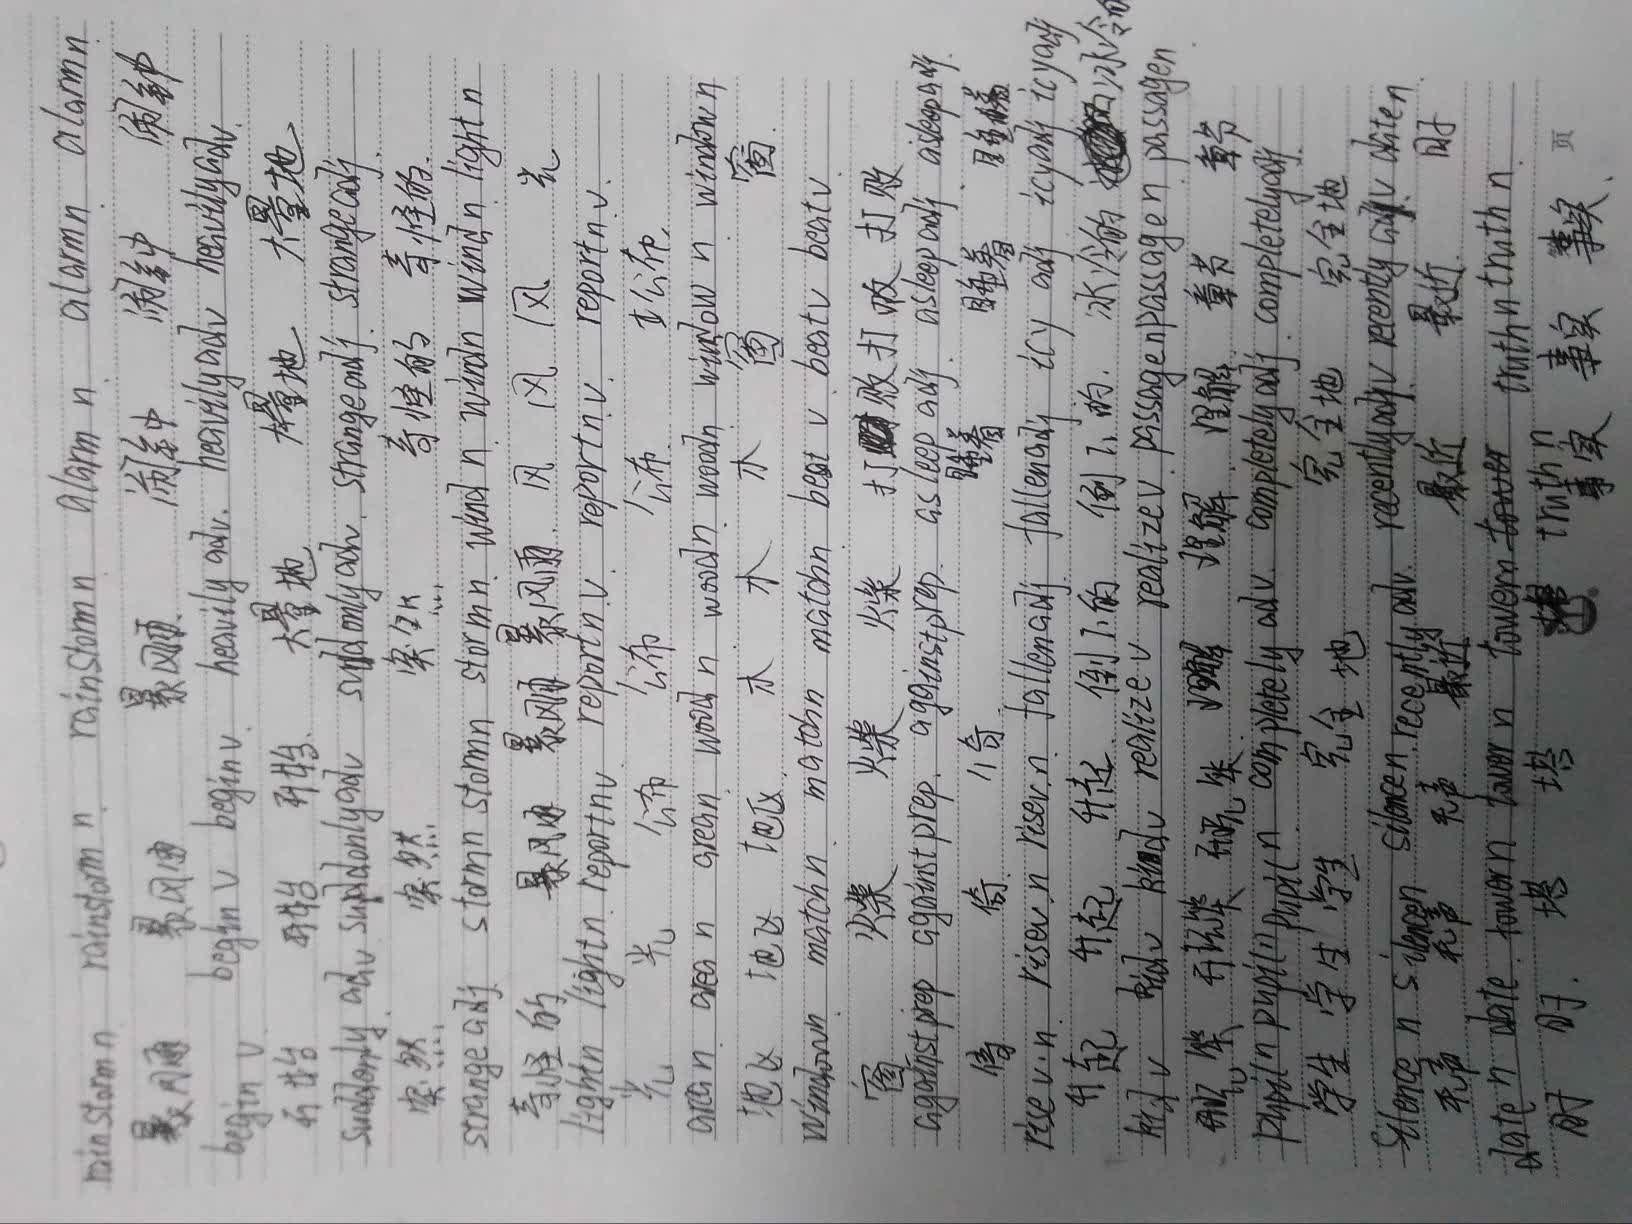 rainstorm n rainstorm n rainstorm n alarm n alarm n alarm n
暴风雨 暴风雨 暴风雨 闹钟 闹钟 闹钟
begin v begin v begin v heavily adv. heavily adv heavily adv.
开始 开始 开始 大量地 大量地 大量地
strange adj strange adj.
突然 突然 奇怪的 奇怪的
strange adj. storm n storm n storm n wind n wind n wind n light n
奇怪的 暴风雨 暴风雨 暴风雨 风 风 风 光
light n light n report n v report n v. report n v. report n v.
光 光 公布 公布 公布 公布
area n area n area n wood n wood n wood n window n window n
地区 地区 地区 木 木 木 窗 窗
match n match n match n beat v beat v beat v
窗 火柴 火柴 火柴 打败 打败 打败
against prep against prep against prep. asleep adj asleep adj. asleep adj. asleep adj.
倚 倚 睡着 睡着 睡着
rise v n rise v n rise v n fallen adj fallen adj. icy adj icy adj icy adj
升起 升起 升起 倒下的 倒下的. 冰冷的 冰冷的
realize v realize v passage n passage n passage n passage n
理解 理解 章节 章节
pupil n pupil n pupil n completely adv. completely adj. completely adj.
学生 学生 学生 完全地 完全地 完全地 完全地
Silence n silence n recently adv. recently adv recently adv date n
无声 无声 无声 最近 最近 最近 时
date n date tower n tower n tower n truth n truth n truth n
时 时. 塔 塔 塔 事实 事实 事实
页